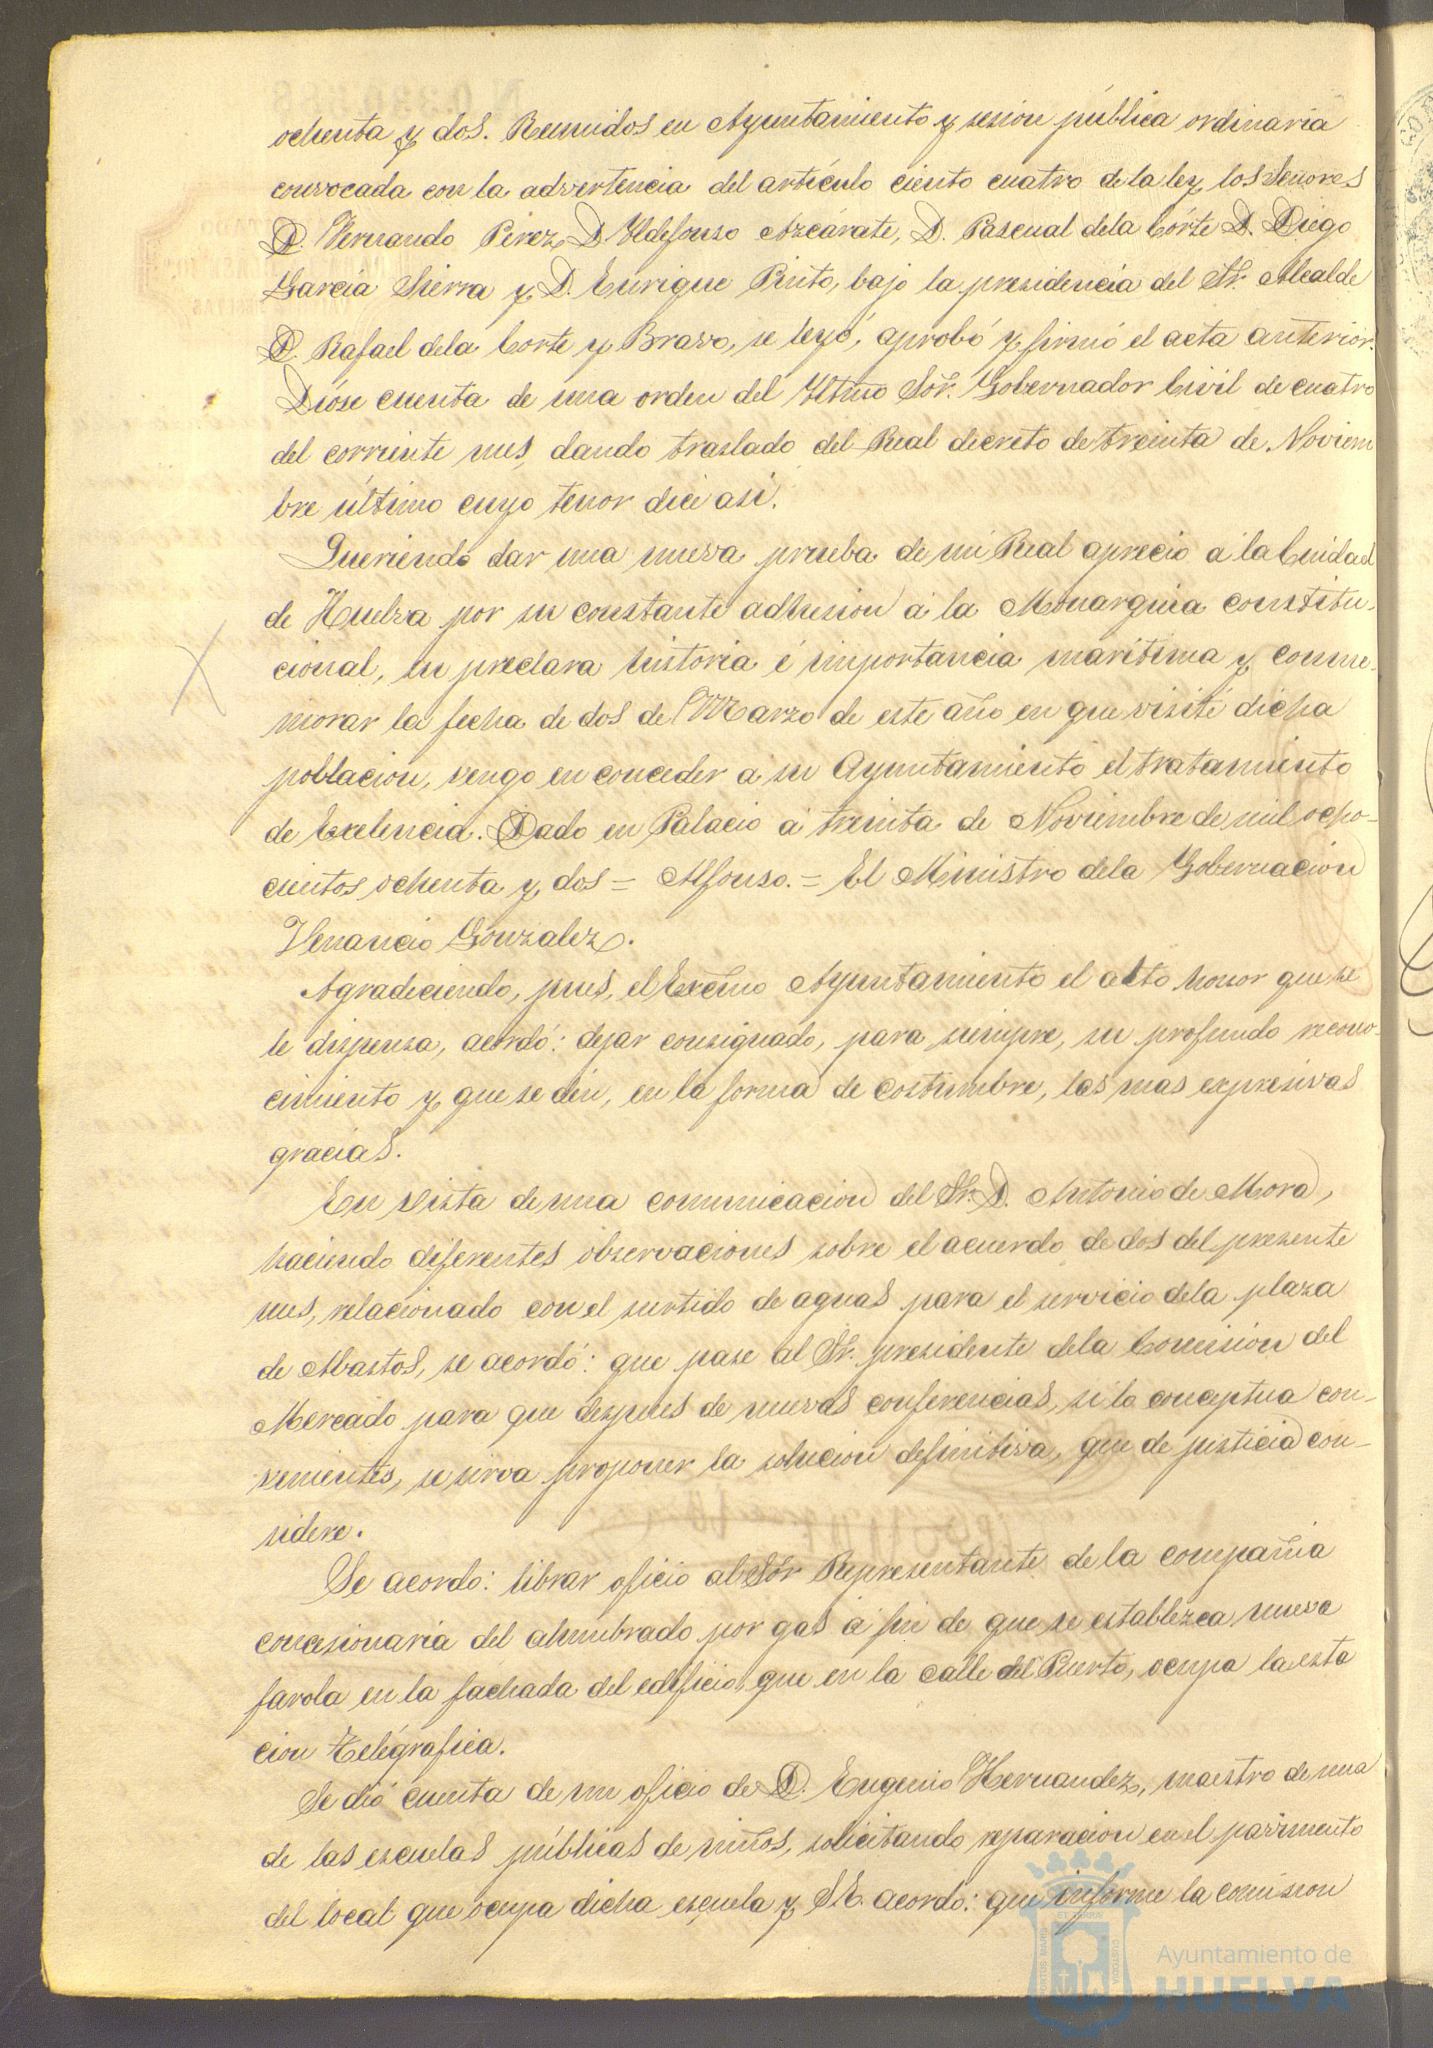 ochenta y dos. Reunidos en Ayuntamiento y sesion pública ordinaria
convocada con la advertencia del artículo ciento cuatro de la ley los Señores
D. Fernando Perez, D. Yldefonso Azcárate, D. Pascual dela Córte D. Diego
García Sierra y D. Enrique Pinto, bajo la presidencia del Sr. Alcalde
D. Rafael dela Corte y Bravo, se leyó, aprobó y firmó el acta anterior.
Dióse cuenta de una orden del Yltmo Sór. Gobernador Civil de cuatro
del corriente mes, dando traslado del Real decreto de treinta de Noviem
bre último cuyo tenor dice asi.
Queriendo dar una nueva prueba de mi Real aprecio a la Ciudad
de Huelva por su constante adhesion á la Monarquia constitu-
cional, su preclara historia é importancia marítima y conme-
morar la fecha de dos de Marzo de este año en que visité dicha
poblacion, vengo en conceder a su Ayuntamiento el tratamiento
de Exelencia. Dado en Palacio á treinta de Noviembre de mil ocho-
cientos ochenta y dos = Alfonso. = El Ministro dela Gobernación
Venancio Gonzalez.
Agradeciendo, pues, el Excmo Ayuntamiento el alto honor que se
le dispensa, acordó: dejar consignado, para siempre, su profundo recono-
cimiento y que se dén, en la forma de costumbre, las mas expresivas
gracias.
En vista de una comunicacion del Sr. D. Antonio de Mora,
haciendo diferentes observaciones sobre el acuerdo de dos del presente
mes, relacionado con el surtido de aguas para el servicio dela plaza
de Abastos, se acordó: que pase al Sr. presidente dela Comision del
Mercado para que despues de nuevas conferencias, si lo conceptua con-
venientes, se sirva proponer la solucion definitiva, que de justicia con-
sidere.
Se acordo: librar oficio al Sór Representante de la compañia
concesionaria del alumbrado por gas á fin de que se establezca nueva
farola en la fachada del edificio que en la calle del Puerto, ocupa la esta
cion telégrafica.
Se dió cuenta de un oficio de D. Eugenio Hernandez, maestro de una
de las escuelas públicas de niños, solicitando reparacion en el pavimento
del local que ocupa dicha escuela y S.E. acordó: que informe la comision
Ayuntamiento de
HUELVA